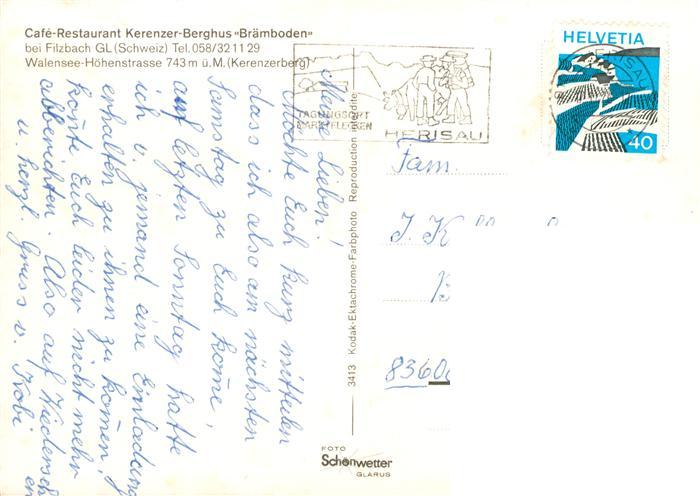 Café-Restaurant Kerenzer-Berghus «Brämboden»
bei Filzbach GL (Schweiz) Tel. 058/32 11 29
Walensee-Höhenstrasse 743 m ü. M. (Kerenzerberg)
Meine Lieben!
Möchte Euch kurz mitteilen
dass ich also am nächsten
Samstag zu Euch kome,
auf letzten Sonntag hatte
ich v. jemand eine Einladung
erhalten zu ihnen zu komen,
konte Euch leider nicht mehr
abberichten. Also auf Wiederseh
u. herzl. Gruss v. Kobi
3413 Kodak-Ektachrome-Farbphoto Reproduction interdite
FOTO
Schönwetter
GLARUS
TAGUNGSORT
MARKTFLECKEN
HERISAU
HELVETIA
HERISAU
40
Fam.
J. K
8360